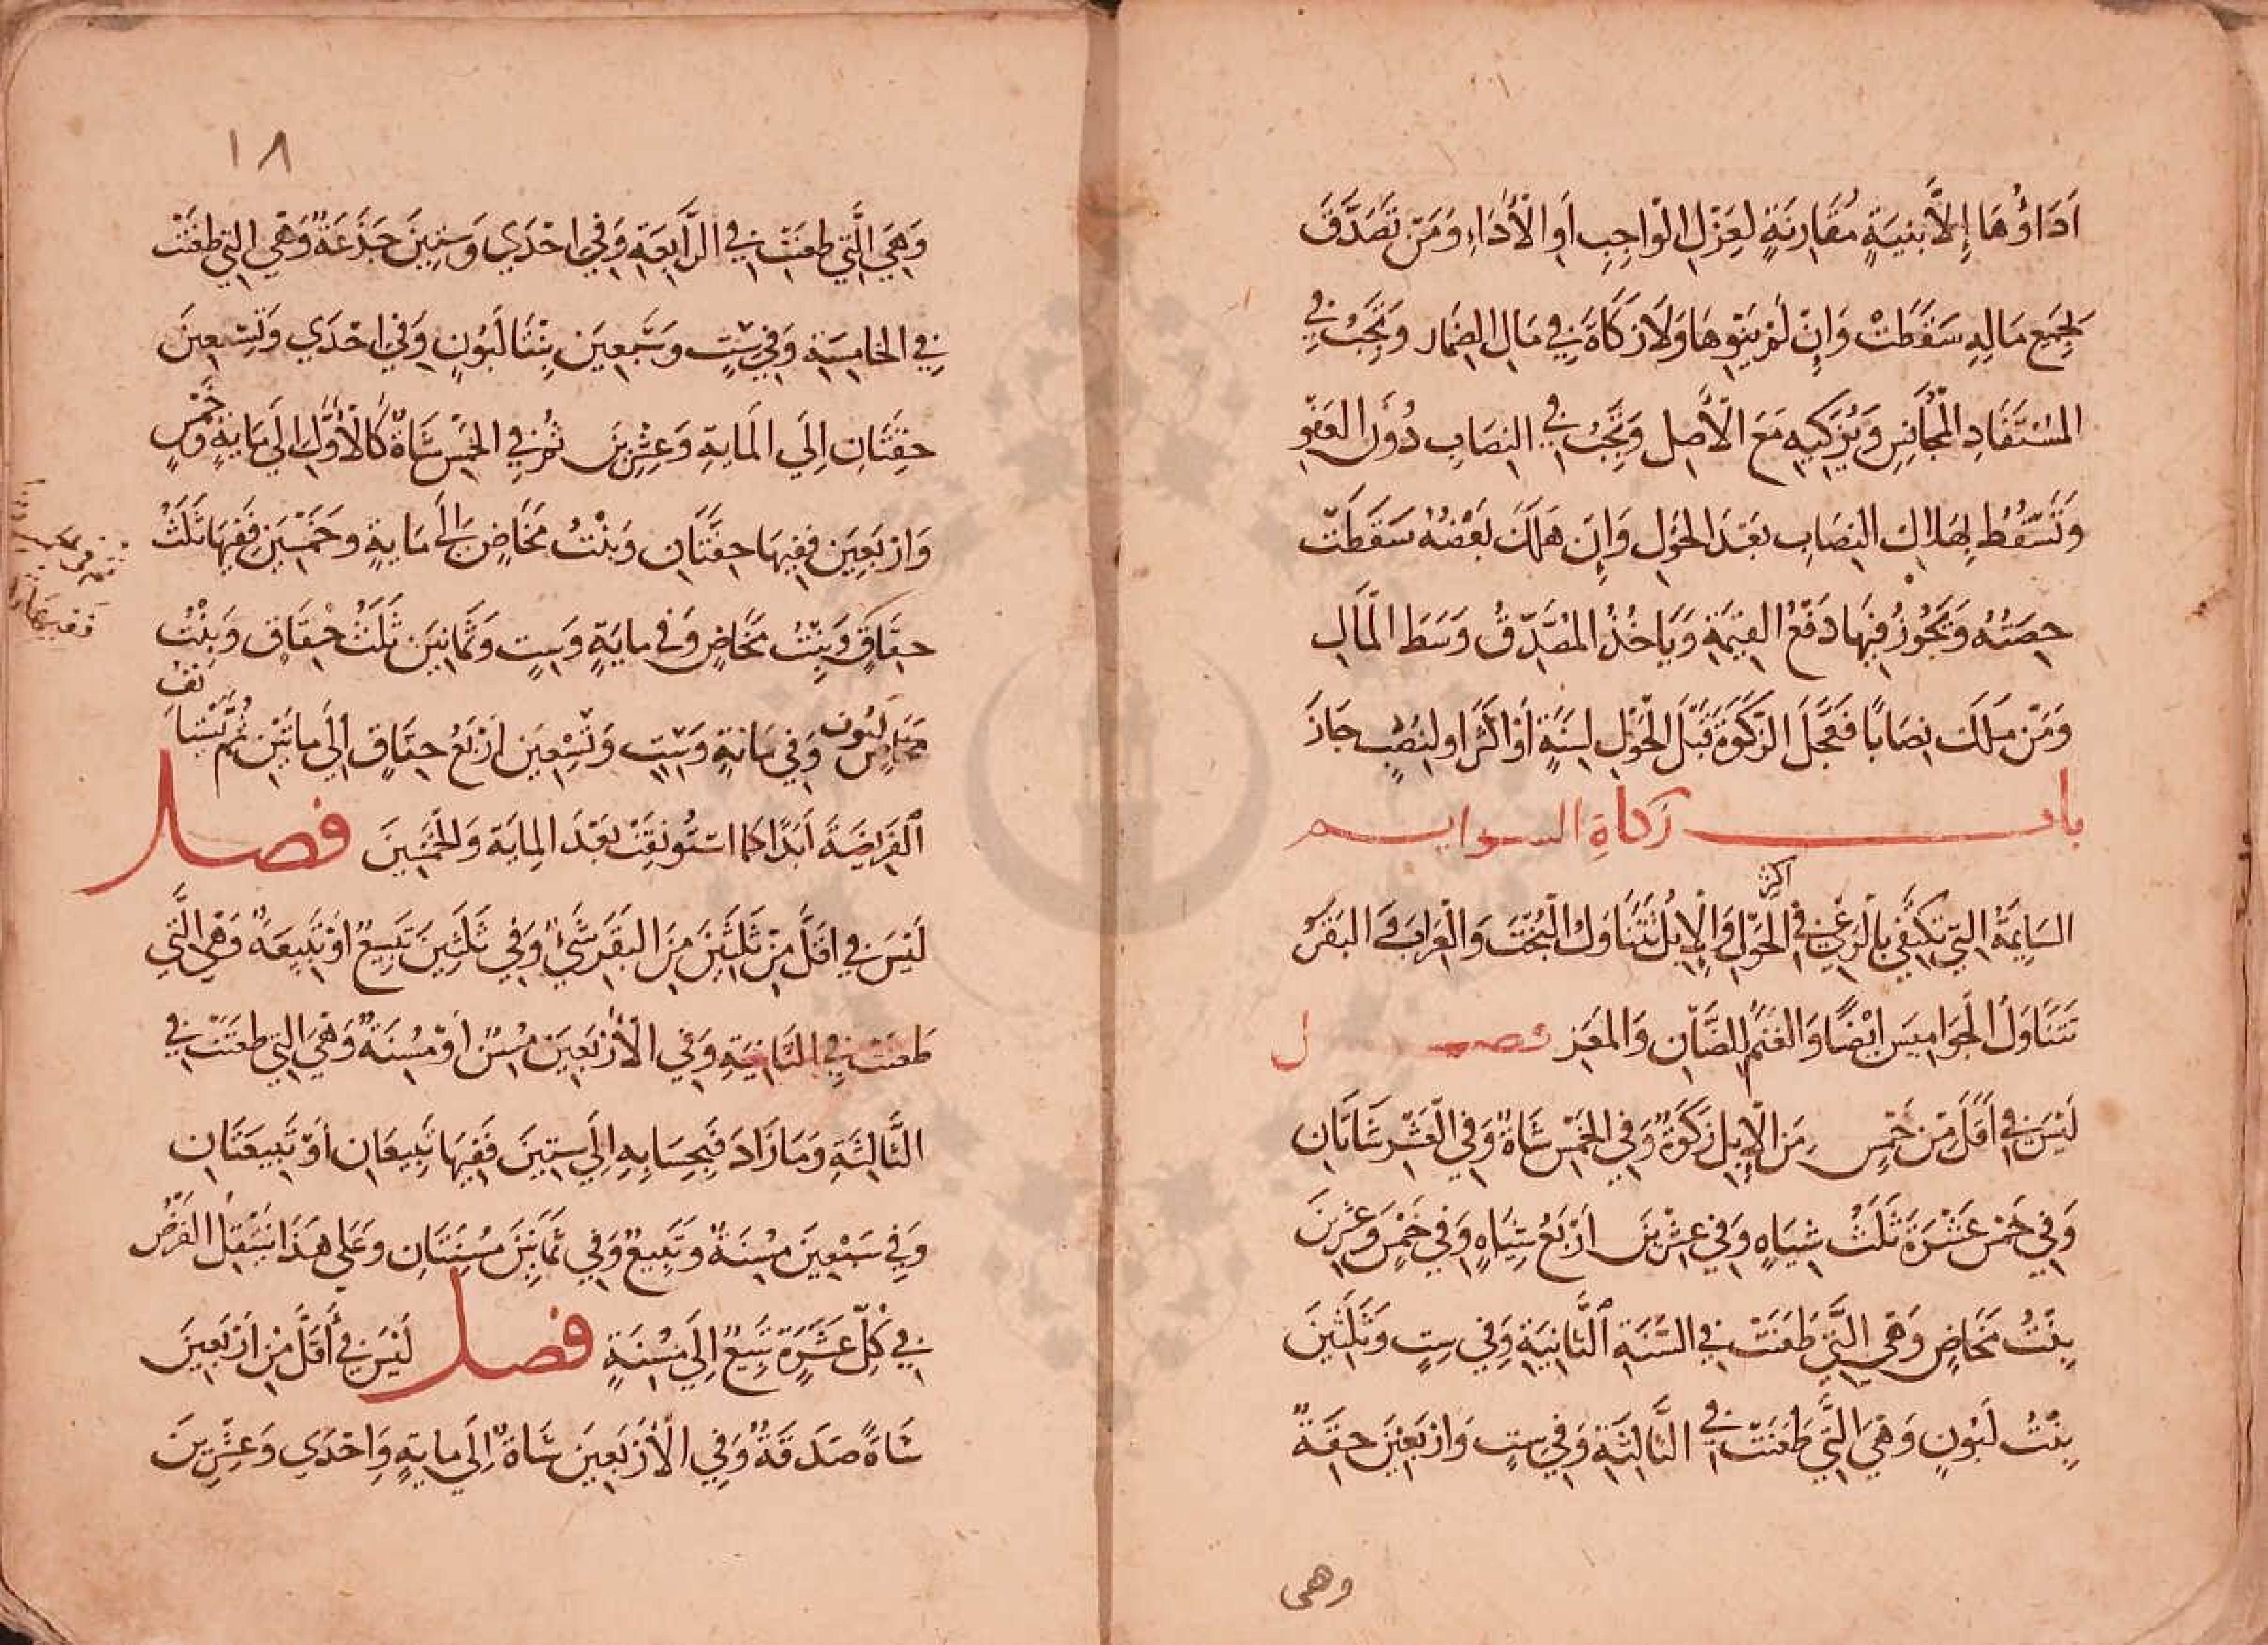 اَدَاؤُهَا إِلَّا بِنِيَةٍ مُقَارِنَةٍ لِعَزْلِ الْوَاجِبِ اَوِ الْأَدَاءِ وَمَنْ تَصَدَّقَ
بِجَمِيعِ مَالِهِ سَقَطَتْ وَاِنْ لَمْ يَنْوِهَا وَلَا زَكَاةَ فِي مَالِ الضِمَار وَتَجِبُ فِي
المُسْتَفَادِ الْمُجَانِسِ وَيُزَكِيهِ مَعَ الْأَصْلِ وَتَجِبُ فِي النِصَابِ دُوْنَ العَفْوِ
وَتَسْقُطُ بِهَلَاكِ النِصَابِ بَعْدَ الحَوْلِ وَاِنْ هَلَكَ بَعْضُهُ سَقَطَتْ
حِصَتُهُ وَيَجُوْزُ فِيْهَا دَفْعُ القِيْمَةِ وَيَاخُذُ المُصَدِّقُ وَسَطَ الْمَالِ
وَمَنْ مَلَكَ نِصَابًا فَعَجَّلَ الزَكَوةَ قَبْلَ الْحَوْلِ لِسَنَةٍ أَوْ اَكْثَرَ اَوْ لِنُصُبٍ جَازَ
باب زكاة السوايم
السَايِمَةُ التِي تَكْتَفِي بِالْرَعْيِ فِي اكثر الحَوْلِ وَالْإِبِلُ تَتَنَاوَلُ الْبُخْتَ وَالْعِرَابَ وَ البَقَرُ
تَتَنَاوَلُ الْجَوَامِيسَ اَيْضًا وَالغَنَمُ للضَّانِ وَالمَعَزِ فصل
لَيْسَ فِي اَقَلَّ مِنْ خَمْسٍ مِنَ الْإِبِلِ زَكَوةٌ وَفِي الخَمْسِ شَاةٌ وَفِي الْعَشْرِ شَاتَانِ
وَفِي خَمْسَ عَشْرَةَ ثَلَثُ شِيَاهٍ وَفِي عِشْرِينَ اَرْبَعُ شِيَاهٍ وَفِي خَمْسٍ وَعِشْرِينَ
بِنْتُ مَخَاضٍ وَهِيَ الَّتِي طَعَنَتْ فِي السَّنَةِ الثَّانِيَةِ وَفِي سِتٍ وَثَلَثِينَ
بِنْتُ لَبُونٍ وَهِيَ الَّتِي طَعَنَتْ فِي الثَّالِثَةِ وَفِي سِتٍ وَاَرْبَعِيْنَ حِقَةٌ
وهى
١٨
وَهِيَ الَّتِي طَعَنَتْ فِي الرَّابِعَةِ وَفِي اِحْدَي وَسِتِينَ جَذَعَةٌ وَهِيَ التِي طَعَنَتْ
فِي الخَامِسَةِ وَفِي سِتٍ وَسَبْعِيْنَ بِنْتَا لَبُونٍ وَفِي اِحْدَي وَتِسْعِينَ
حِقَتَانِ اِلَي الَمايَةِ وَعِشْرِينَ ثُمَّ فِي الخَمْسِ شَاةٌ كَالْأَوَّلِ اِلَي مَايَةٍ وَخَمْسٍ
وَاَرْبَعِيْنَ فَفِيهَا حِقَّتَانِ وَبِنْتُ مَخَاضٍ اِلَى مَايَةٍ وَخَمْسِيْنَ فَفِيهَا ثَلَثُ
حِقَاقٍ وَبِنْتُ مَخَاضٍ وَفِي مايَةٍ وَسِتٍ وَثَمَانِيْنَ ثَلَثُ حِقَاقٍ وَبِنْتُ
لبون وَفِي مَائةٍ وَسِتٍ وَتِسْعِينَ اَرْبَعُ حِقَاقٍ اِلَي مِاتَيْنِ ثُمَّ تُسْتَانَفُ
الْفَرِيْضَةُ أَبَدًا كمَا اسْتُؤنِفَتْ بَعْدَ المِايَةِ وَالخَمْسِينَ فصل
لَيْسَ فِي اَقَلَّ مِنْ ثَلَثِيْنَ مِنَ البَقَرِ شَيْءٌ وَفِي ثَلَثِينَ تَبِيعٌ اَوْ تَبِيعَةٌ وَهِيَ الَّتِي
طَعَنَتْ فِي الثَّانِيَةِ وَفِي الْأَرْبَعِيْنَ مُسِنٌ اَوْ مُسِنَةٌ وَهِيَ التِي طَعَنَتْ فِي
الثَّالِثَةِ وَمَا زَادَ فَبِحِسَابِهِ اِلَي سِتِينَ فَفِيْهَا تَبِيعَانِ اَوْ تَبِيعَتَانِ
وَفِي سَبْعِينَ مُسِنَةٌ وَتَبِيعٌ وَفِي ثَمَانِيْنَ مُسِنَتَانِ وَعَلَي هَذَا يَنْتَقِلُ الفَرْضُ
فِي كُلِّ عَشَرَةٍ مِنْ تَبِيْعٍ اِلَي مُسِنَةٍ فصل لَيْسَ فِي أَقَلَّ مِنْ اَرْبَعِينَ
شَاةً صَدَقَةٌ وَفِي الْأَرْبَعِينَ شَاةٌ اِلَي مايَةٍ وَاِحْدَي وَعِشْرِينَ